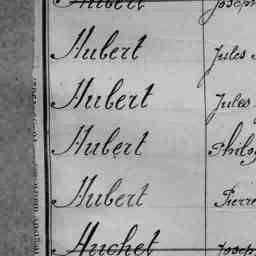 Hubert Joseph
Hubert Jules
Hubert Jules
Hubert Philog
Hubert Pierre
Huchet Joseph